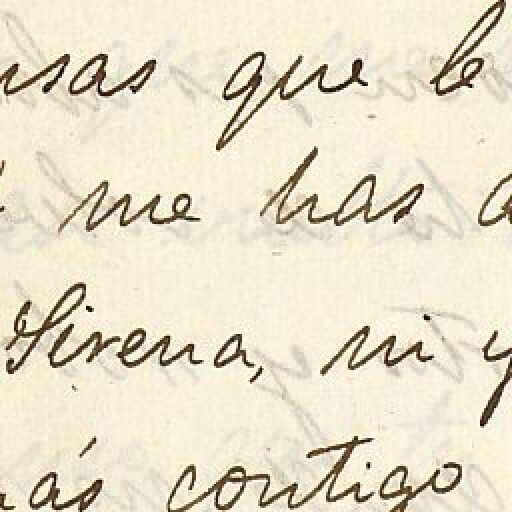 usas que le
me has a
Sirena, ni y
más contigo